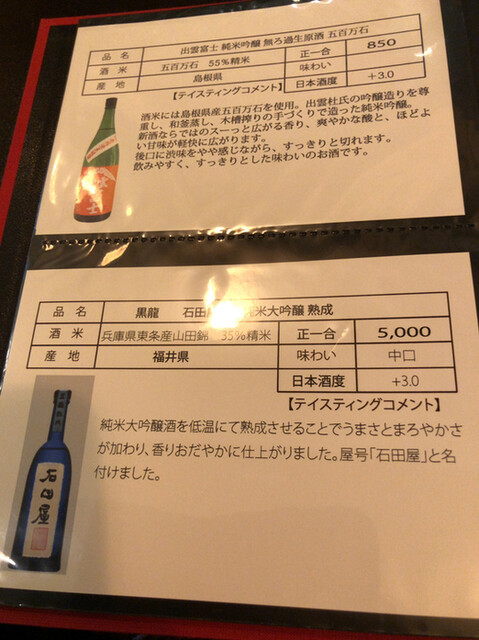 品 名 出雲富士 純米吟醸 無ろ過生原酒 五百万石
酒 米 五百万石 55%精米 正一合 850
産 地 島根県 味わい
日本酒度 +3.0
【テイスティングコメント】
酒米には島根県産五百万石を使用。出雲杜氏の吟醸造りを尊
重し、和釜蒸し、木槽搾りの手づくりで造った純米吟醸。
新酒ならではのスーっと広がる香り、爽やかな酸と、ほどよ
い甘味が軽快に広がります。
後口に渋味をやや感じながら、すっきりと切れます。
飲みやすく、すっきりとした味わいのお酒です。
品 名 黒龍 石田 米大吟醸 熟成
酒 米 兵庫県東条産山田錦 35%精米 正一合 5,000
産 地 福井県 味わい 中口
日本酒度 +3.0
【テイスティングコメント】
純米大吟醸酒を低温にて熟成させることでうまさとまろやかさ
が加わり、香りおだやかに仕上がりました。屋号「石田屋」と名
付けました。
石田屋